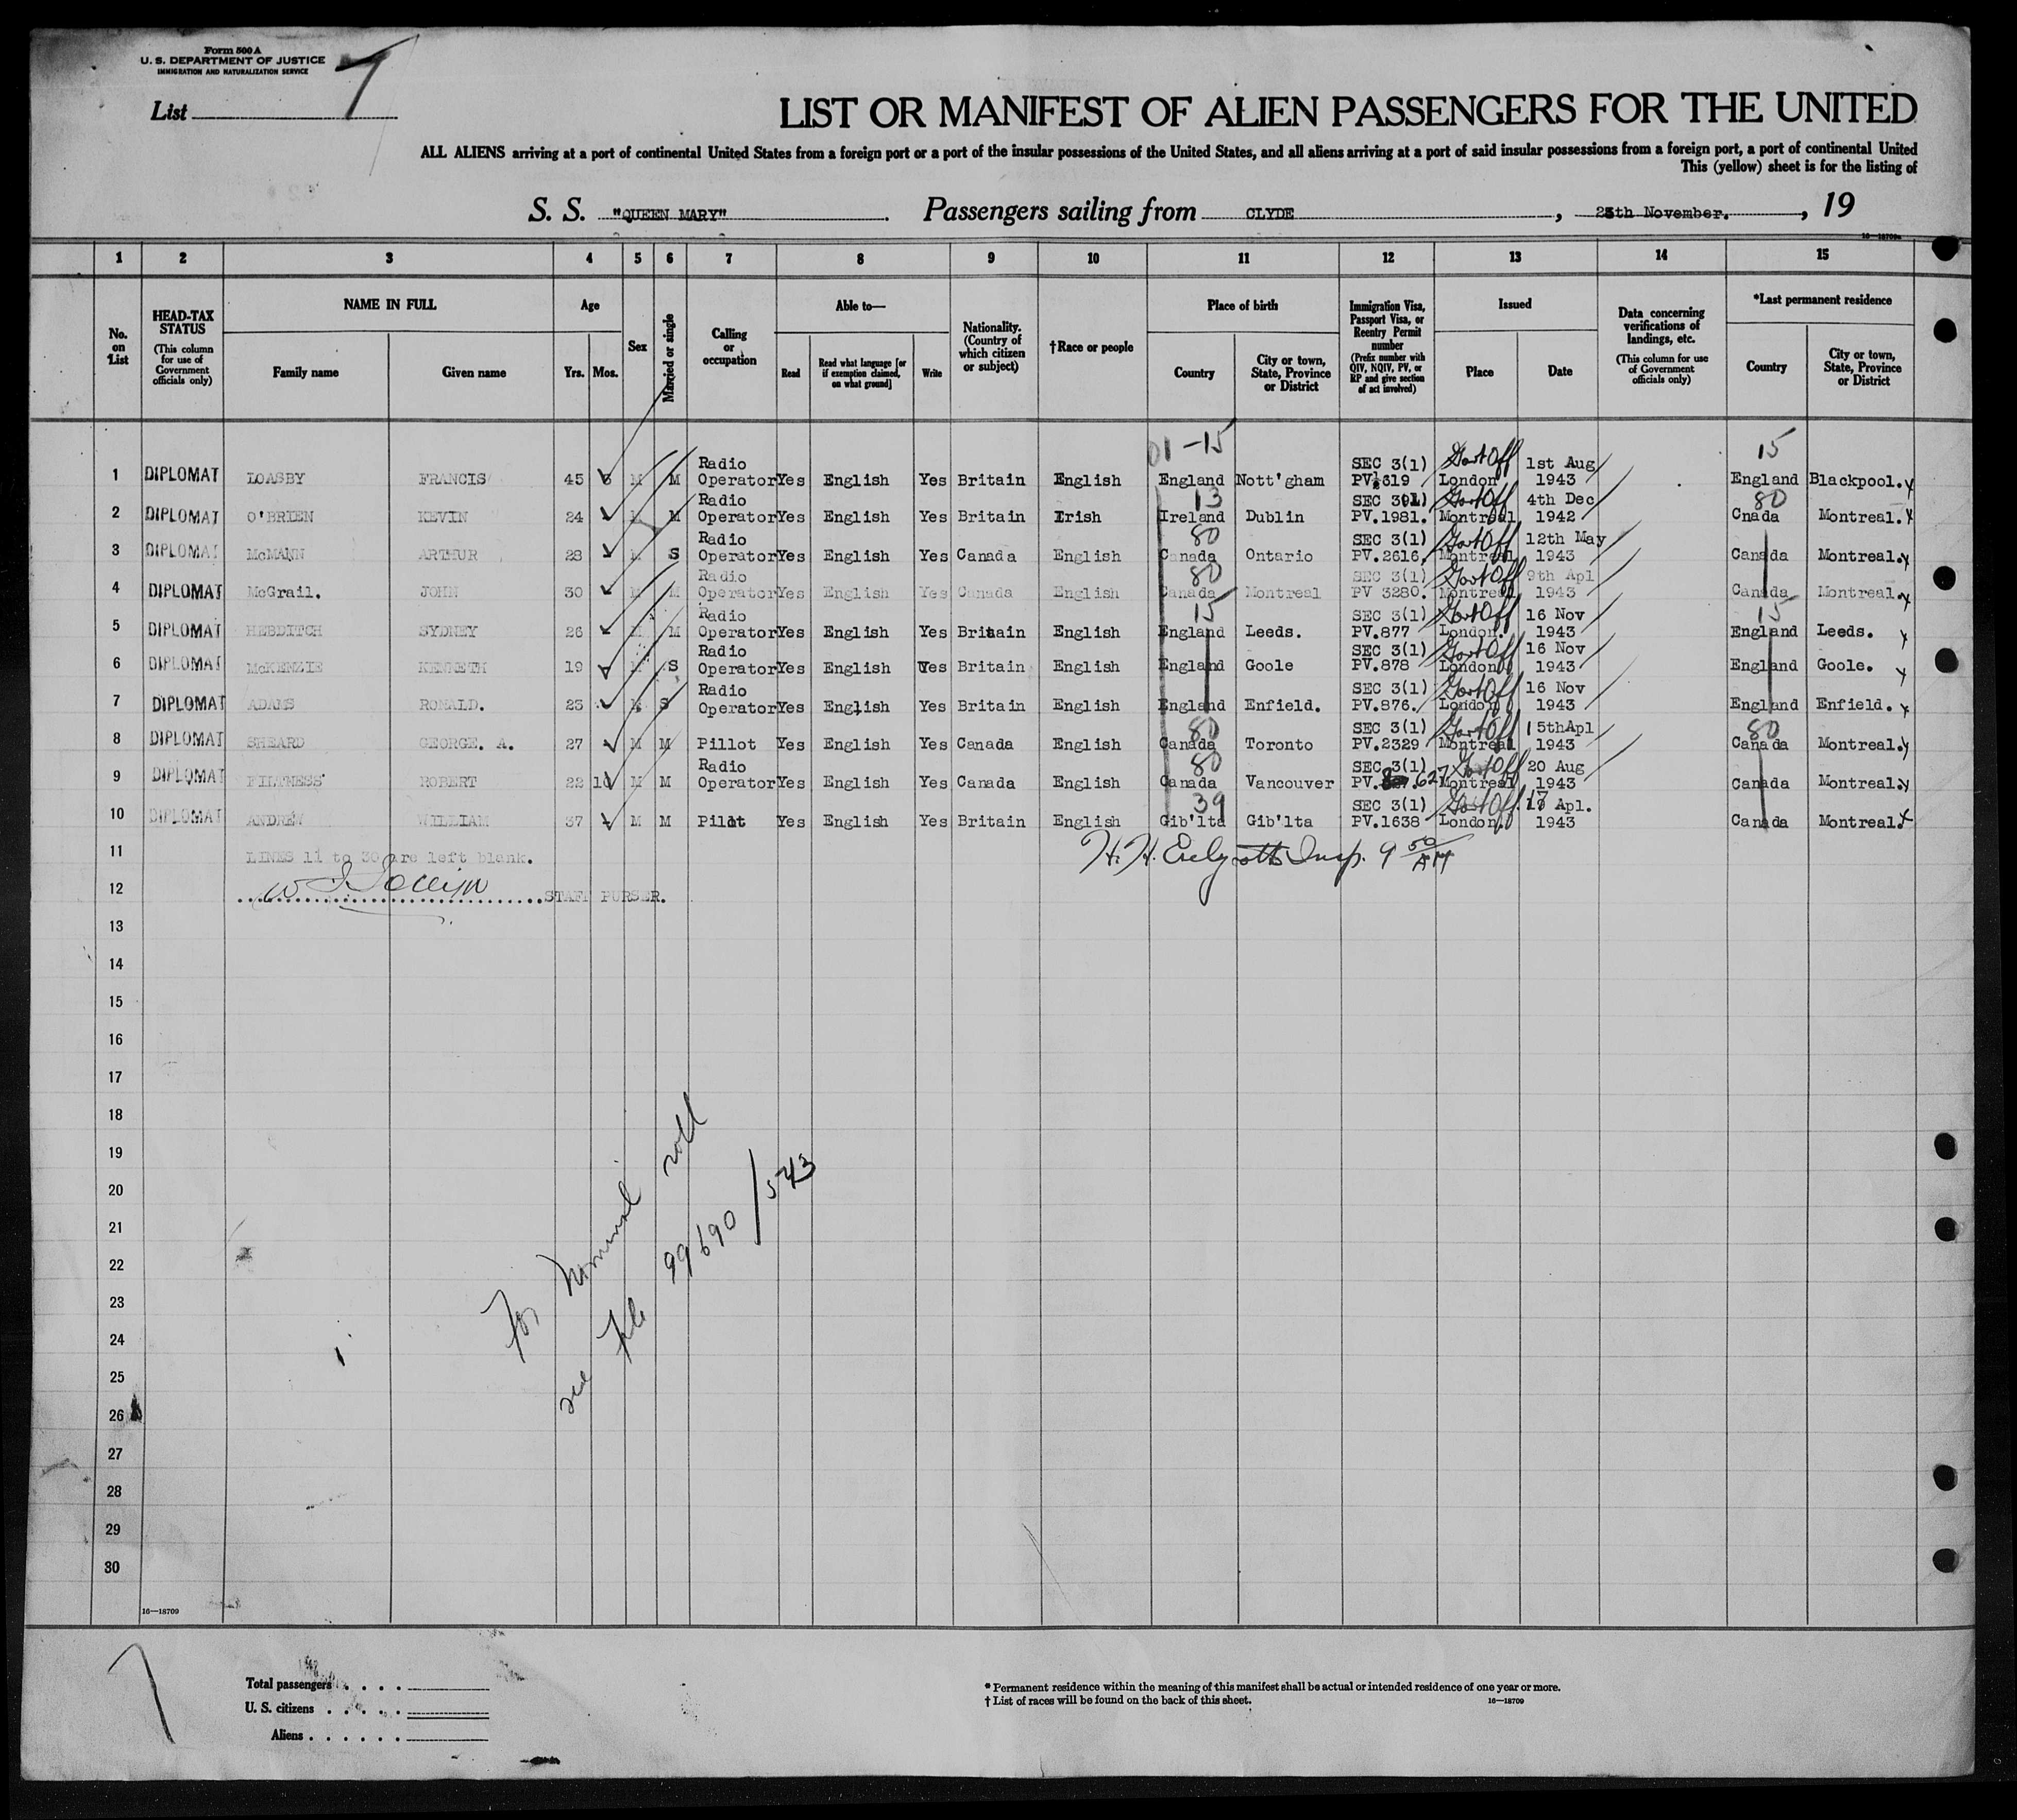 Form 500 A
U. S. DEPARTMENT OF JUSTICE
IMMIGRATION AND NATURALIZATION SERVICE
List 7
LIST OR MANIFEST OF ALIEN PASSENGERS FOR THE UNITED
ALL ALIENS arriving at a port of continental United States from a foreign port or a port of the insular possessions of the United States, and all aliens arriving at a port of said insular possessions from a foreign port, a port of continental United
This (yellow) sheet is for the listing of
S. S. "QUEEN MARY". Passengers sailing from CLYDE, 25th November., 19
16—18709
1 2 3 4 5 6 7 8 9 10 11 12 13 14 15
No. on List
HEAD-TAX STATUS (This column for use of Government officials only)
NAME IN FULL
Family name Given name
Age
Yrs. Mos.
Sex
Married or single
Calling or occupation
Able to—
Read Read what language [or if exemption claimed, on what ground] Write
Nationality. (Country of which citizen or subject)
†Race or people
Place of birth
Country City or town, State, Province or District
Immigration Visa, Passport Visa, or Reentry Permit number (Prefix number with QIV, NQIV, PV, or RP and give section of act involved)
Issued
Place Date
Data concerning verifications of landings, etc. (This column for use of Government officials only)
*Last permanent residence
Country City or town, State, Province or District
01-15 15
1 DIPLOMAT LOASBY FRANCIS 45 M M Radio Operator Yes English Yes Britain English England Nott'gham SEC 3(1) PV.619 London 1st Aug 1943 England Blackpool.
13 80
2 DIPLOMAT O'BRIEN KEVIN 24 M M Radio Operator Yes English Yes Britain Irish Ireland Dublin SEC 3(1) PV.1981. Montreal 4th Dec 1942 Cnada Montreal.
80
3 DIPLOMAT McMANN ARTHUR 28 M S Radio Operator Yes English Yes Canada English Canada Ontario SEC 3(1) PV.2616. Montreal 12th May 1943 Canada Montreal.
80
4 DIPLOMAT McGrail. JOHN 30 M M Radio Operator Yes English Yes Canada English Canada Montreal SEC 3(1) PV 3280. Montreal 9th Apl 1943 Canada Montreal.
15 15
5 DIPLOMAT HEBDITCH SYDNEY 26 M M Radio Operator Yes English Yes Britain English England Leeds. SEC 3(1) PV.877 London. 16 Nov 1943 England Leeds.
6 DIPLOMAT McKENZIE KENNETH 19 M S Radio Operator Yes English Yes Britain English England Goole SEC 3(1) PV.878 London 16 Nov 1943 England Goole.
7 DIPLOMAT ADAMS RONALD. 23 M S Radio Operator Yes English Yes Britain English England Enfield. SEC 3(1) PV.876. London 16 Nov 1943 England Enfield.
80 80
8 DIPLOMAT SHEARD GEORGE. A. 27 M M Pillot Yes English Yes Canada English Canada Toronto SEC 3(1) PV.2329 Montreal 15thApl 1943 Canada Montreal.
80
9 DIPLOMAT FILTNESS ROBERT 22 10 M M Radio Operator Yes English Yes Canada English Canada Vancouver SEC 3(1) PV. 627 Montreal 20 Aug 1943 Canada Montreal
39
10 DIPLOMAT ANDREW WILLIAM 37 M M Pilot Yes English Yes Britain English Gib'lta Gib'lta SEC 3(1) PV.1638 London. 17 Apl. 1943 Canada Montreal.
11 LINES 11 to 30 are left blank.
H. H. Insp. 9 50 AM
12 STAFF PURSER.
13
14
15
16
17
18
19
20
21
22
23
24
25
26
27
28
29
30
For nominal roll
see File 99690/543
16—18709
7
Total passengers
U. S. citizens
Aliens
* Permanent residence within the meaning of this manifest shall be actual or intended residence of one year or more.
† List of races will be found on the back of this sheet.
16—18709